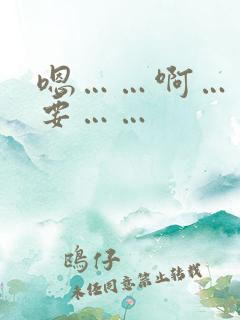 嗯……啊…
要……
鴎仔
未经同意禁止转载